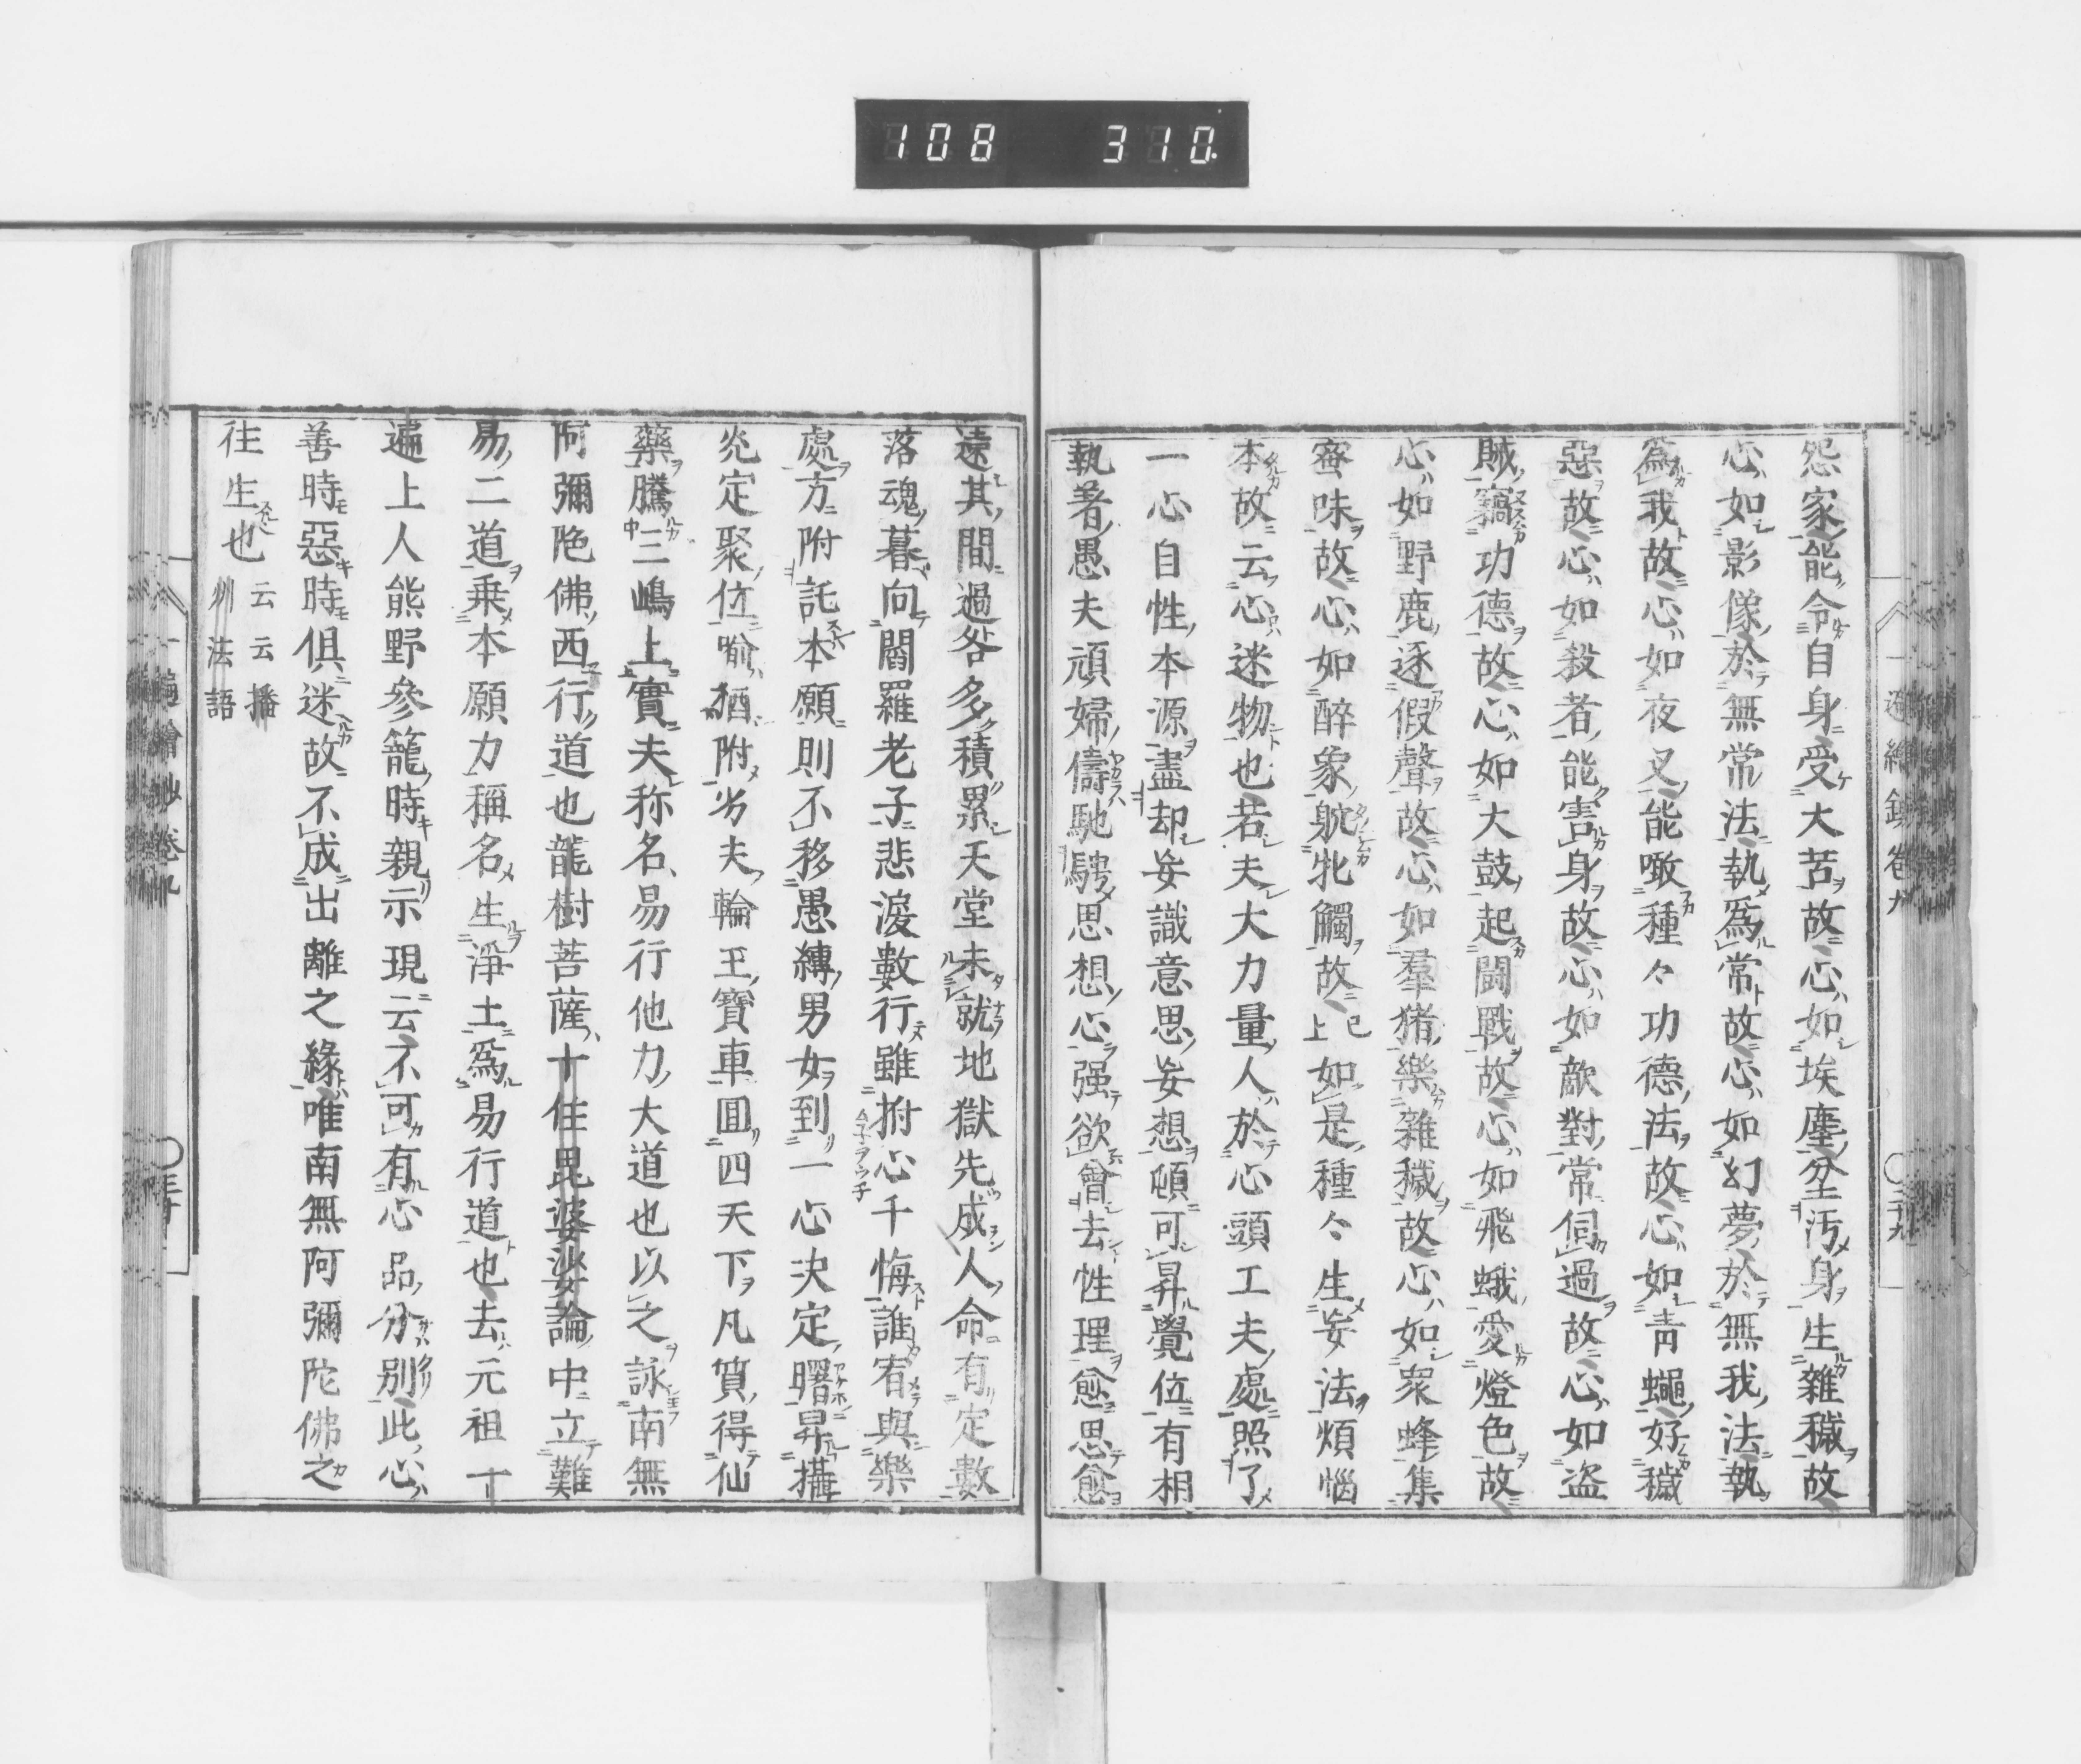 108 310
怨家能令自身受大苦故心如埃塵坌汚身生雜穢故
心如影像於無常法執爲常故心如幻夢於無我法執
爲我故心如夜叉能噉種々功德法故心如靑蠅好穢
惡故心如殺者能害身故心如敵對常伺過故心如盗
賊竊功德故心如大鼓起闘戰故心如飛蛾愛燈色故
心如野鹿逐假聲故心如羣猪樂雜穢故心如衆蜂集
蜜味故心如醉象躭牝觸故已上如是種々生妄法煩惱
本故云心迷物也若夫大力量人於心頭工夫處照了
一心自性本源盡却妄識意思妄想頓可昇覺位有相
執著愚夫頑婦儔馳騁思想心强欲會去性理愈思愈
遠其間過咎多積累天堂未就地獄先成人命有定數
落魂暮向閻羅老子悲淚數行雖拊心千悔誰宥與樂
處方附託本願則不移愚縛男女到一心決定曙昇攝
光定聚位喻猶附劣夫輪王寶車囬四天下凡質得仙
藥騰中三嶋上實夫称名易行他力大道也以之詠南無
阿彌陁佛西行道也龍樹菩薩十住毘婆娑論中立難
易二道乘本願力稱名生淨土爲易行道也去元祖一
遍上人熊野參籠時親示現云不可有心品分別此心
善時惡時俱迷故不成出離之緣唯南無阿彌陀佛之
往生也云云播州法語